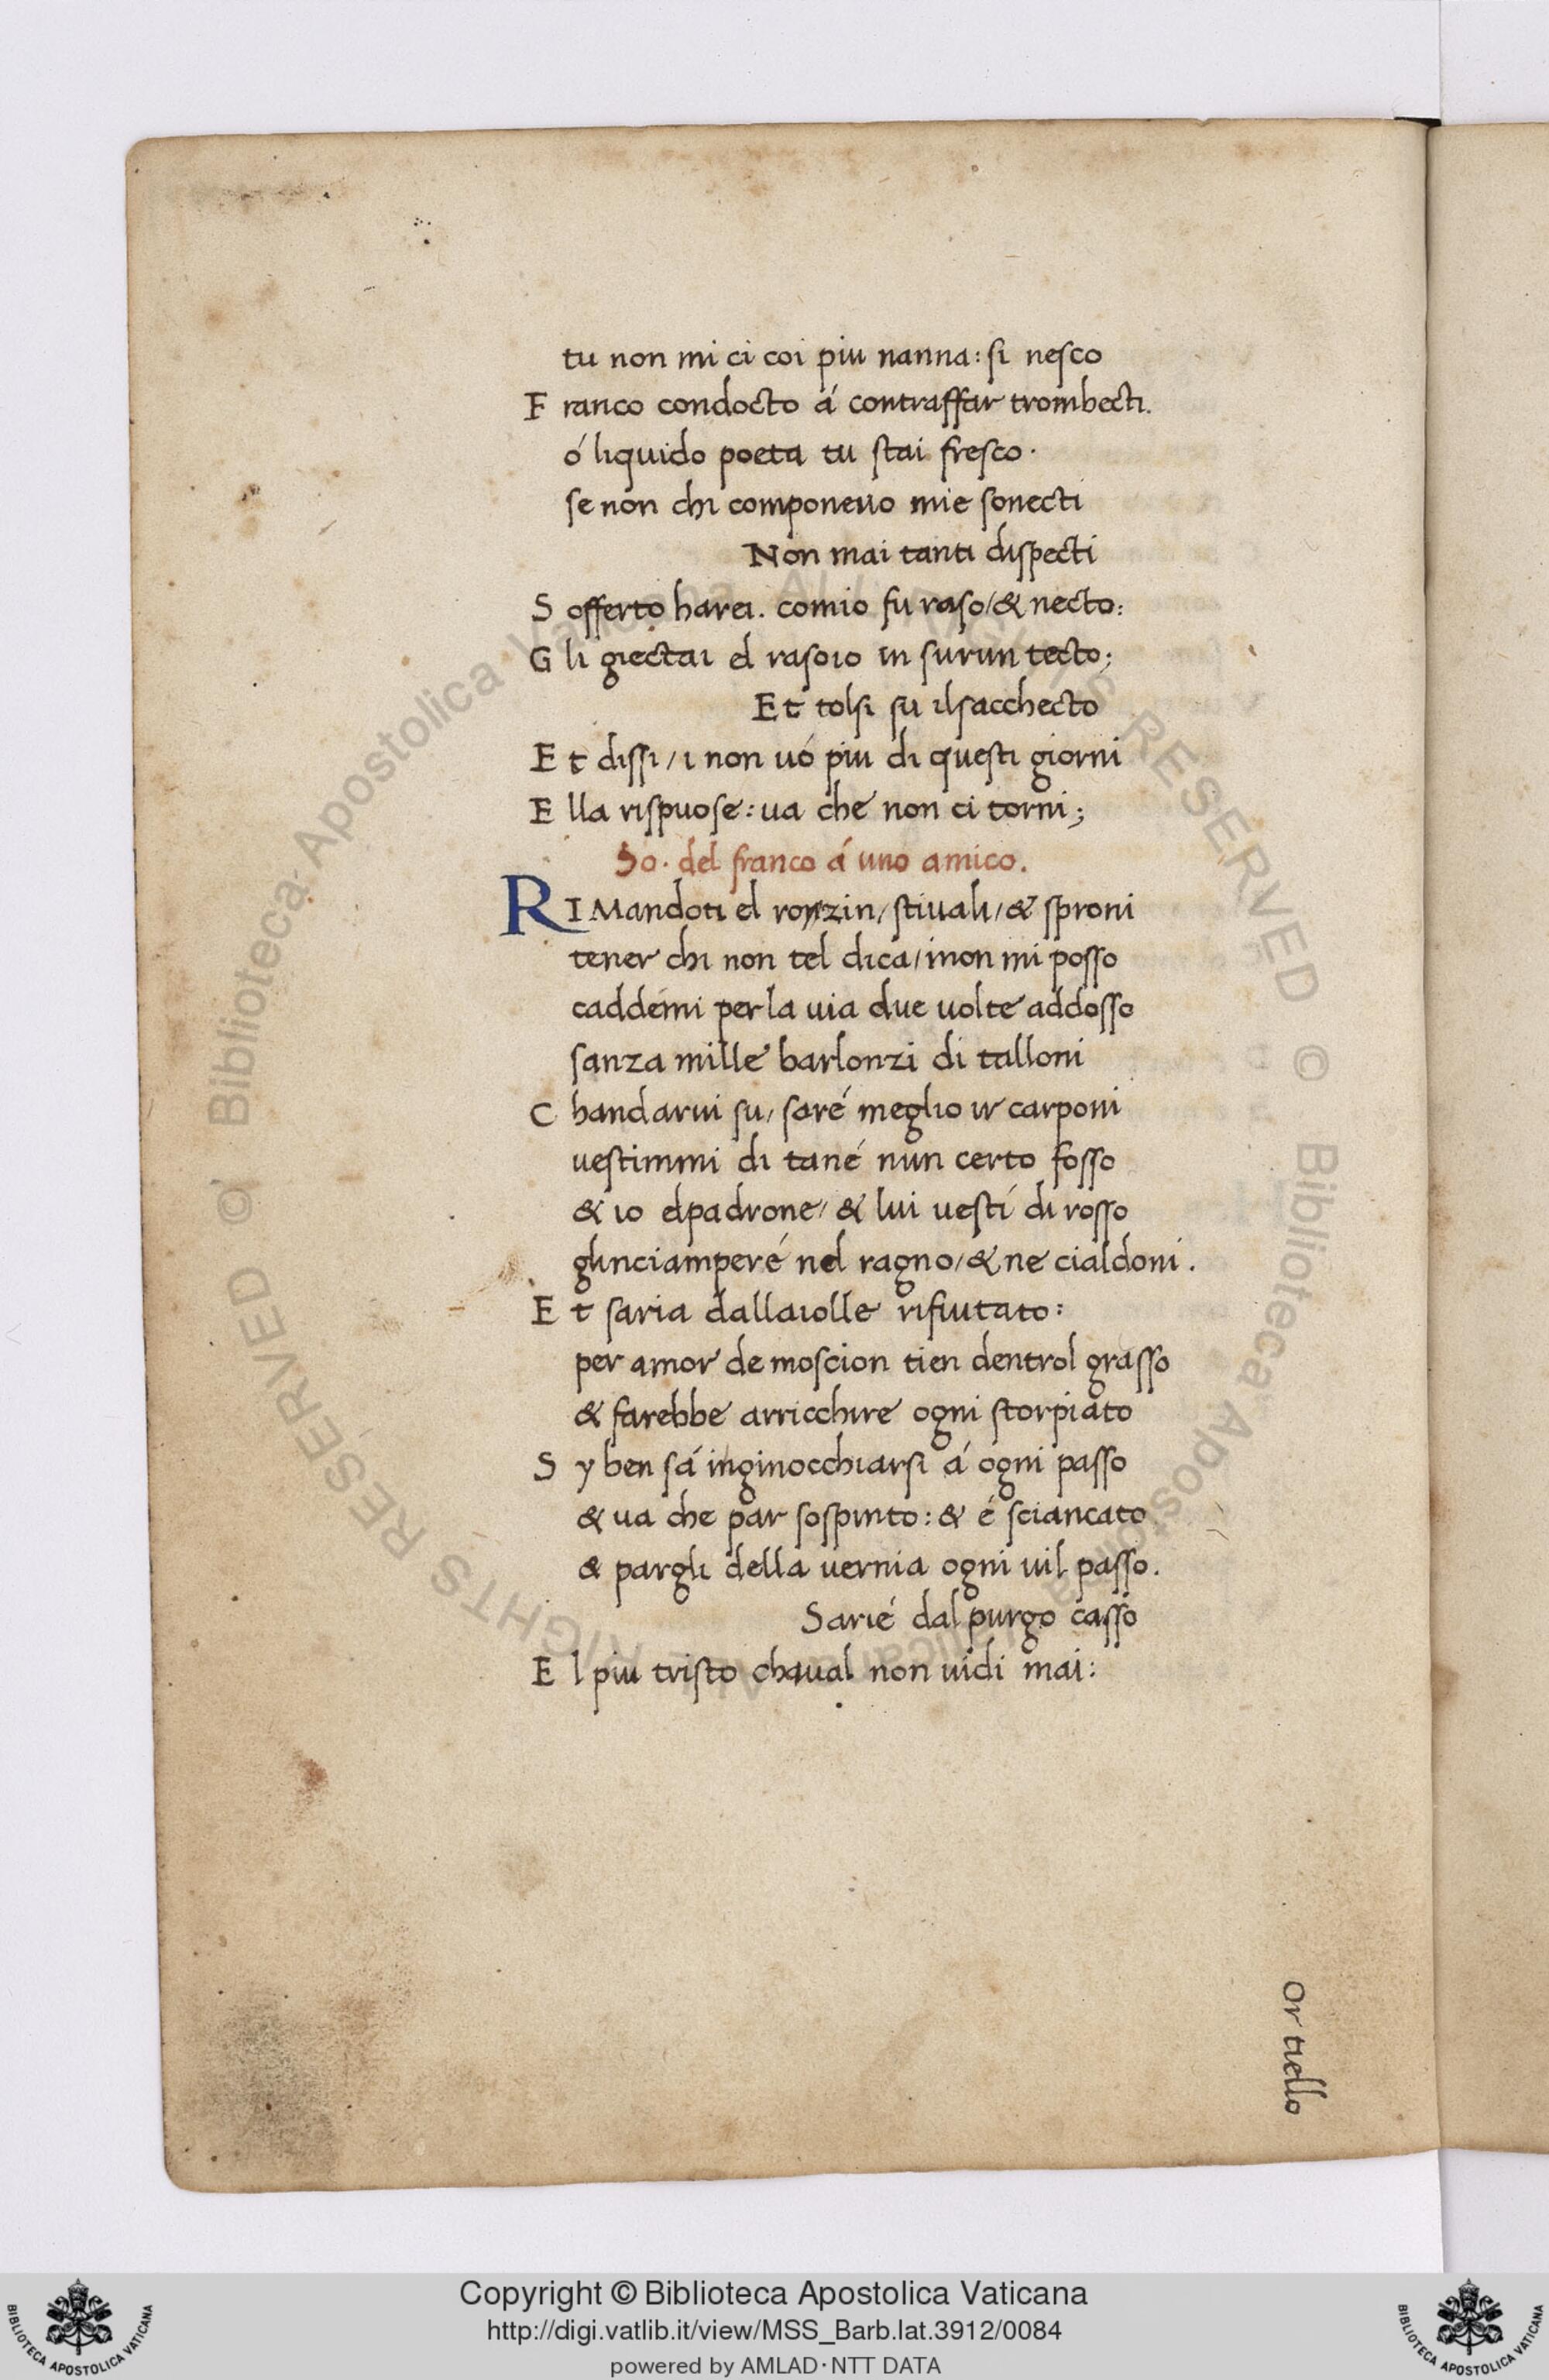 tu non mi ci coi piu nanna: si nesco
F ranco condocto á contraffar trombecti.
ó liquido poeta tu stai fresco.
se non chi componeuo mie sonecti
Non mai tanti dispecti
S offerto harei. comio fu raso/& necto:
G li giectai el rasoio in surun tecto;
Et tolsi su ilsacchecto
E t dissi / i non uó piu di questi giorni
E lla rispuose: ua che non ci torni;
So. del franco á uno amico.
RI Mandoti el ronzin/ stiuali/ & sproni
tener chi non tel dica/ inon mi posso
caddémi per la uia due uolte addosso
sanza mille barlonzi di talloni
C handarui su/ saré meglio ir carponi
uestimmi di tané nun certo fosso
& io elpadrone/ & lui uestí di rosso
glinciamperé nel ragno/ & ne cialdoni.
E t saria dallaiolle rifiutato:
per amor de moscion tien dentrol grasso
& farebbe arricchire ogni storpiato
S y ben sá inginocchiarsi á ogni passo
& ua che par sospinto: & é sciancato
& pargli della uernia ogni uil passo.
Sarié dal purgo casso
E l piu tristo chaual non uidi mai:
Or tiello
© Biblioteca Apostolica Vaticana ALL RIGHTS RESERVED © Biblioteca Apostolica Vaticana ALL RIGHTS RESERVED
Copyright © Biblioteca Apostolica Vaticana
http://digi.vatlib.it/view/MSS_Barb.lat.3912/0084
powered by AMLAD·NTT DATA
BIBLIOTECA APOSTOLICA VATICANA
BIBLIOTECA APOSTOLICA VATICANA